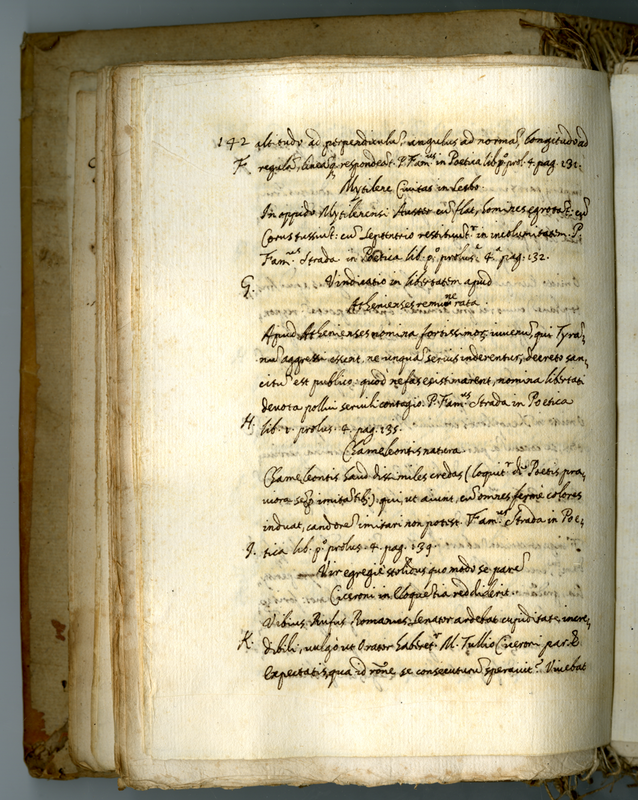 142 altitudo ad perpendiculũ, angulus ad normã, longitudo ad
F. regulã, linea respondeat. P. Fam.us in Poetica lib. p.o prol. 4. pag. 131.
Mytilene Civitas in Lesbo.
In oppido Mytilenensi Auster cũ flat, homines egrotãt: cũ
Corus tussiũt: cũ Septentrio restituũt.r in incolumitatem. P.
Fam.us Strada in Poetica lib. p.o prolus.e 4.a pag. 132.
G. Vindicatio in libertatem apud
Athenienses remunerata.
Apud Athenienses nomina fortissimoꝝ iuvenũ, qui Tyrã,
nũ aggressi essent, ne unquã servis inderentur, decreto san,
citũ est publico: quod nefas existimarent, nomina libertati
devota pollui servili contagio. P. Fam.us Strada in Poetica
H. lib. 1. prolus. 4. pag. 135.
Chameleontis natura.
Chameleontis haud dissimiles credas (loquit.r de Poetis pra,
viora semp imitãtib.) qui, ut aiunt, cũ omnes ferme colores
induat, candorẽ imitari non potest. Fam.us Strada in Poe,
I. tica lib. p.o prolus. 4. pag. 139.
Vir egregie stolidus quo modo se parẽ
Ciceroni in Eloquẽtia reddiderit.
Vibius Rufus Romanus Senator ardebat cupiditate incre,
K. dibili, vulgo ut Orator haberet.r M. Tullio Ciceroni par. &
Expectatis, qua id rõne se consecuturũ speravit? Vivebat